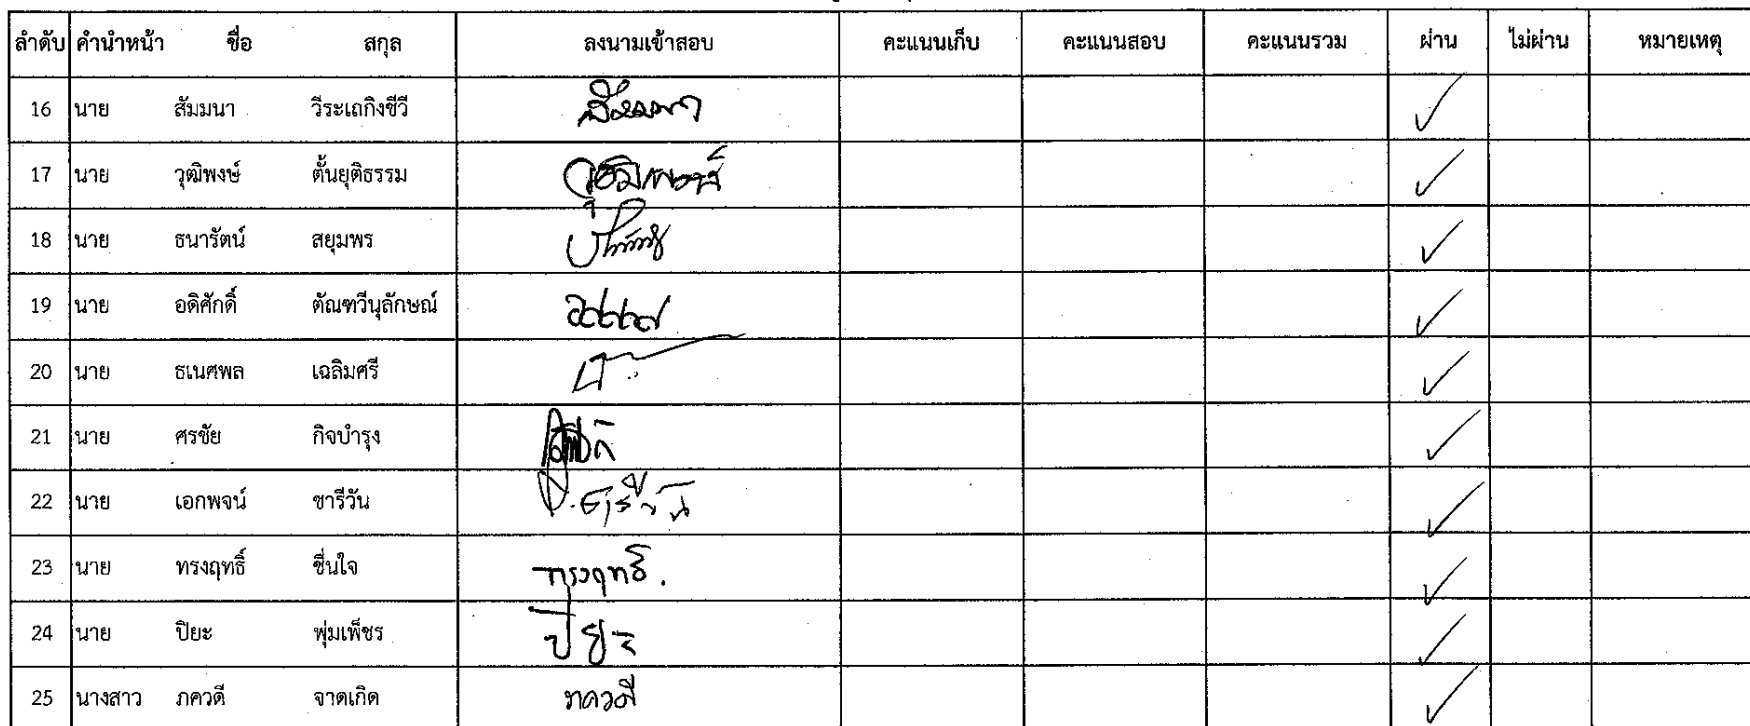 ลำดับ คำนำหน้า ชื่อ สกุล ลงนามเข้าสอบ คะแนนเก็บ คะแนนสอบ คะแนนรวม ผ่าน ไม่ผ่าน หมายเหตุ
16 นาย สัมมนา วีระเถกิงชีวี สัมมนา ✓
17 นาย วุฒิพงษ์ ตั้นยุติธรรม วุฒิพงษ์ ✓
18 นาย ธนารัตน์ สยุมพร ✓
19 นาย อดิศักดิ์ ตัณฑวีนุลักษณ์ ✓
20 นาย ธเนศพล เฉลิมศรี ✓
21 นาย ศรชัย กิจบำรุง ✓
22 นาย เอกพจน์ ชารีวัน ✓
23 นาย ทรงฤทธิ์ ชื่นใจ ทรงฤทธิ์. ✓
24 นาย ปิยะ พุ่มเพ็ชร ปิยะ ✓
25 นางสาว ภควดี จาดเกิด ภควดี ✓